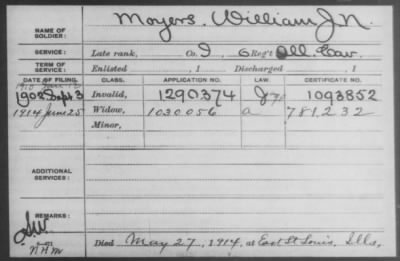 NAME OF SOLDIER: Moyers, William J. N.
SERVICE: Late rank, Co. I, 6 Reg't Ill. Cav.
TERM OF SERVICE: Enlisted , 1 Discharged , 1
DATE OF FILING. CLASS. APPLICATION NO. LAW. CERTIFICATE NO.
1908 Sept 3 Invalid, 1290374 1093852
1914 June 25 Widow, 1030056 a 781232
Minor,
ADDITIONAL SERVICES:
REMARKS:
Died May 27, 1914, at East St Louis, Ills,